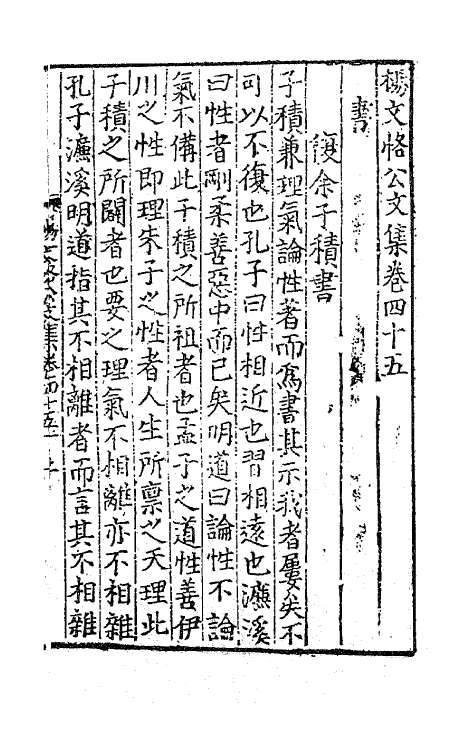 楊文恪公文集卷四十五
書
復余子積書
子積兼理氣論性著而爲書其示我者屢矣不
可以不復也孔子曰性相近也習相遠也濂溪
曰性者剛柔善惡中而已矣明道曰論性不論
氣不備此子積之所祖者也孟子之道性善伊
川之性即理朱子之性者人生所稟之天理此
子積之所闢者也要之理氣不相離亦不相雜
孔子濂溪明道指其不相離者而言其不相雜
楊文恪公文集卷四十五